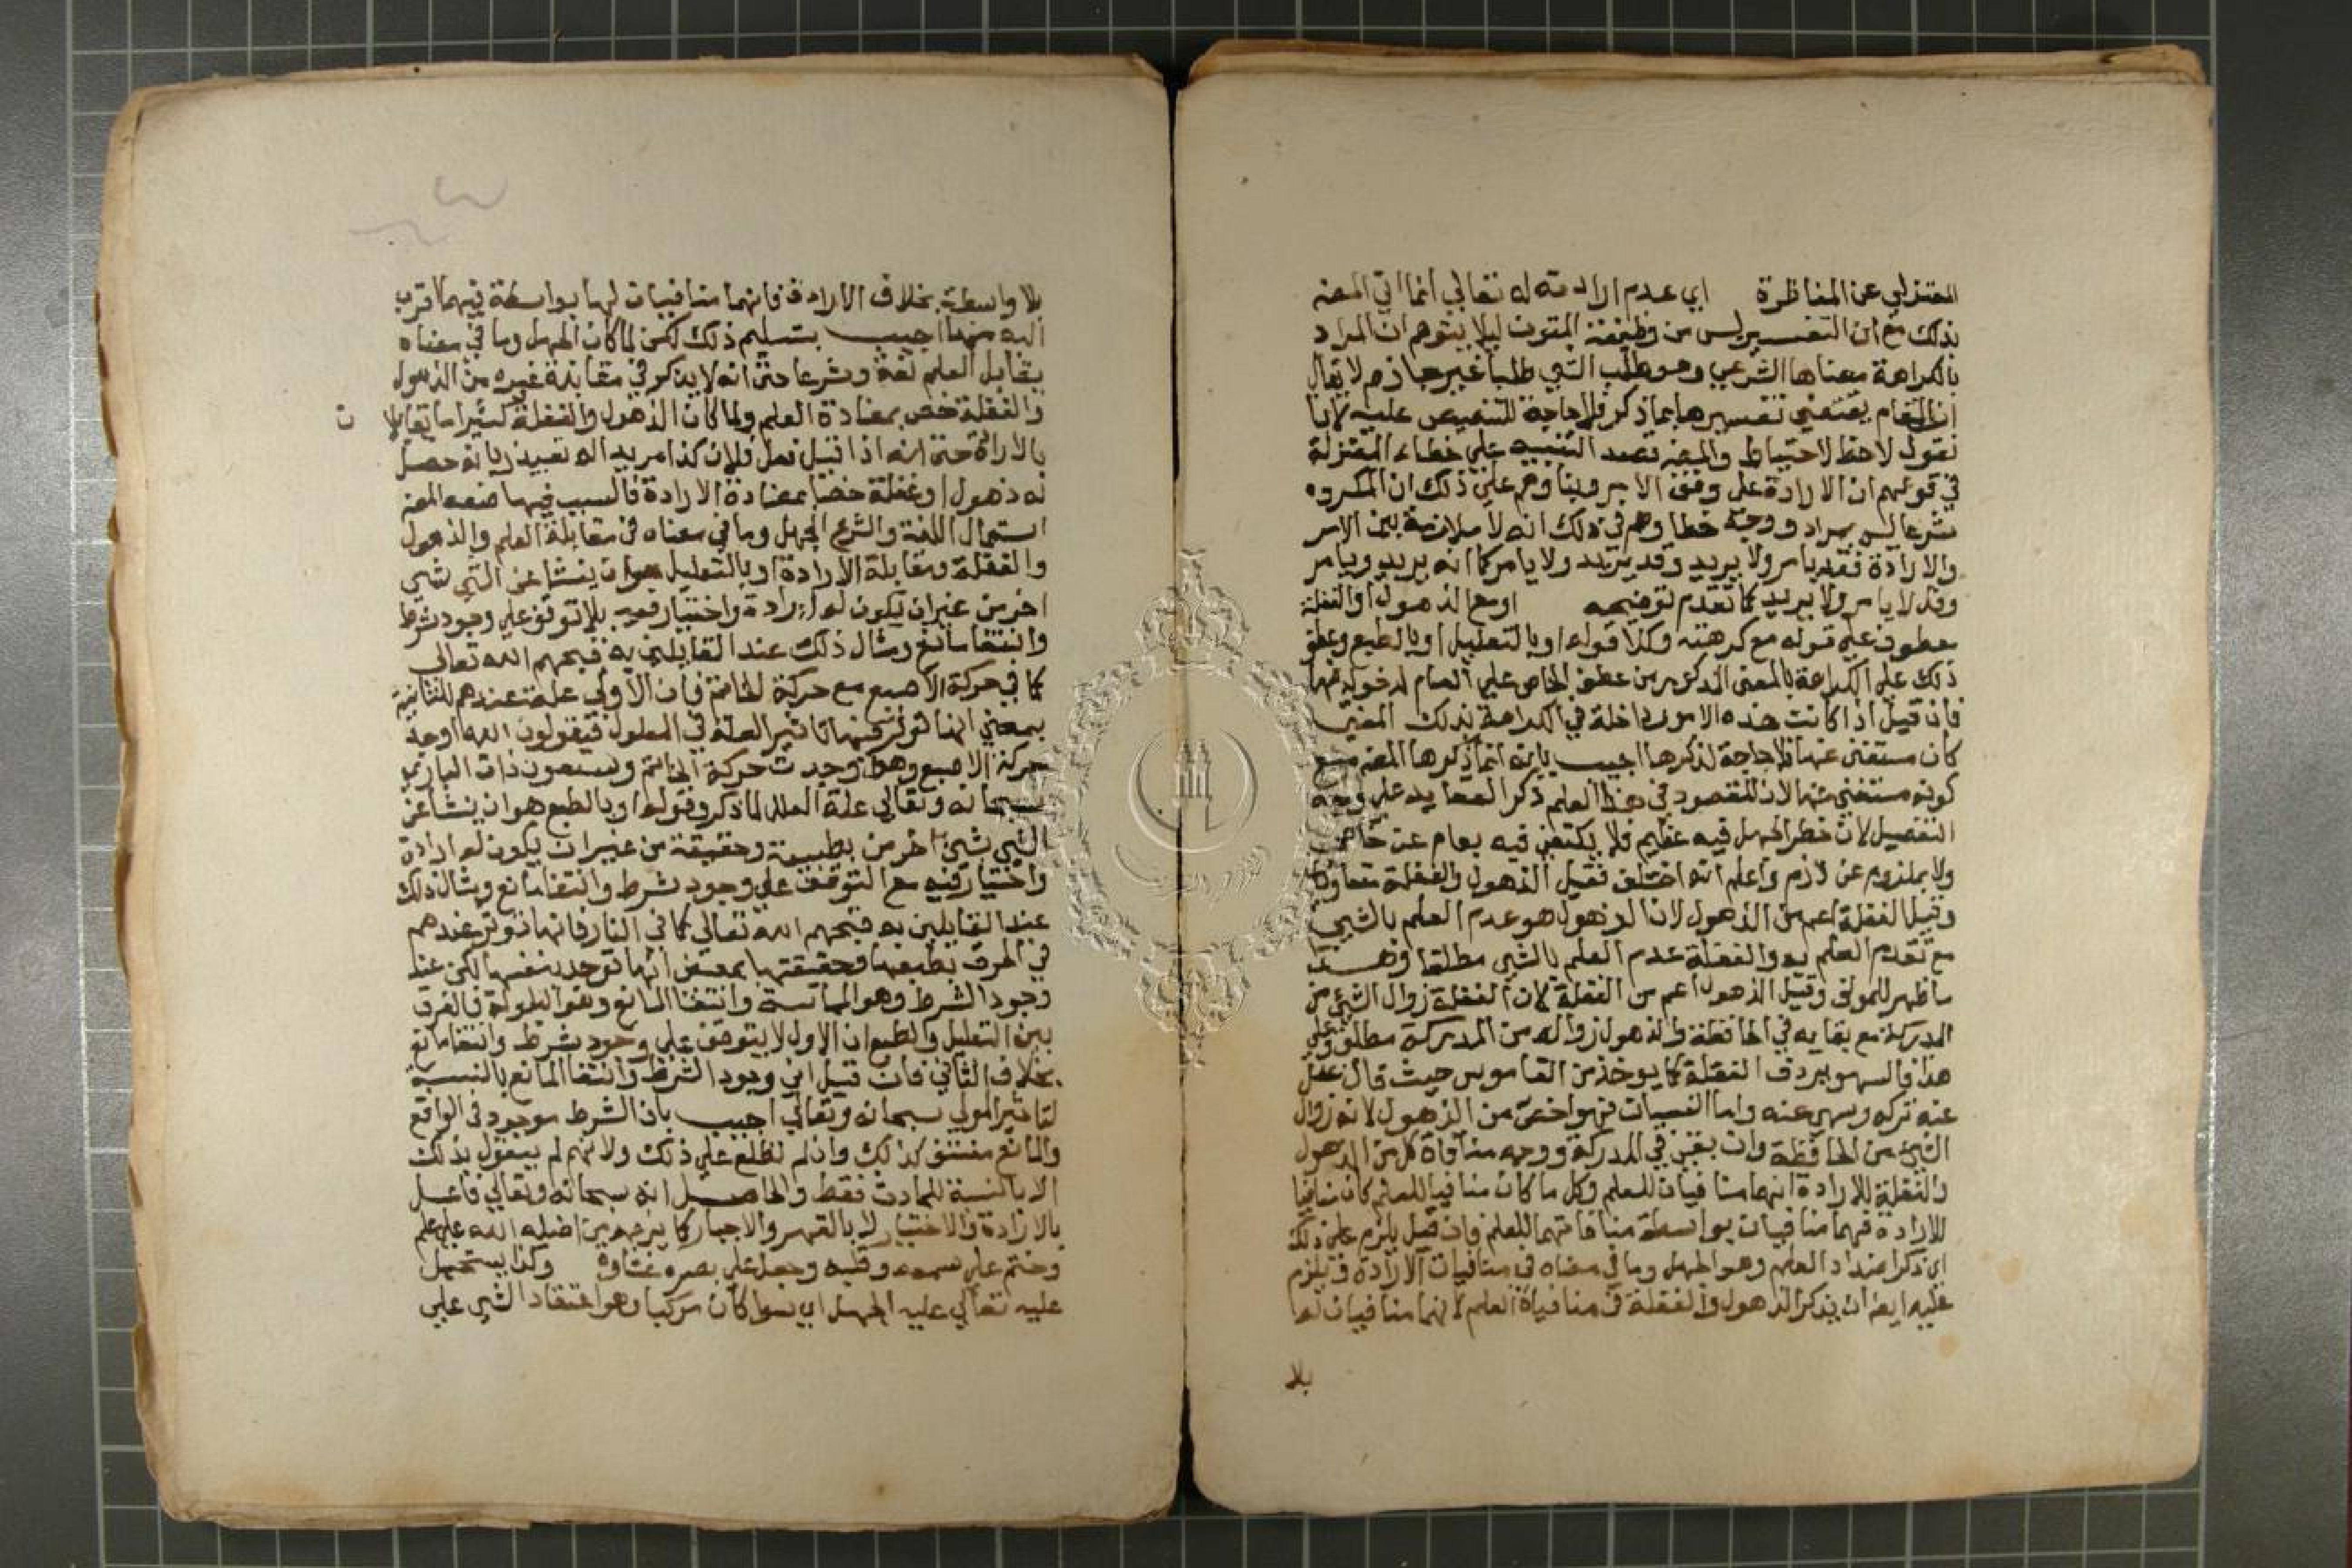 المعتزلي عن المناظرة اي عدم ارادته له تعالي انما اتي المصنف
بذلك مع ان التفسير ليس من وظيفة المتون ليلا يتوهم ان المراد
بالكراهة معناها الشرعي وهو طلب الشي طلبا غير جازم لا يقال
ان المقام يقتضي تفسيرها بما ذكر فلا حاجة للتنصيص عليه لانا
نقول لاحظ الاحتياط والمصنف قصد التنبيه علي خطاء المعتزلة
في قولهم ان الارادة علي وفق الامر وبناوهم علي ذلك ان المكروه
شرعا ليس مراد ووجه خطاوهم في ذلك انه لا ملازمة بين الامر
والارادة فقد يامر ولا يريد وقد يريد ولا يامر كما انه يريد ويامر
وقد لا يامر ولا يريد كما تقدم توضيحه او مع الذهول او الغفلة
معطوف علي قوله مع كرهته وكذا قوله او بالتعليل او بالطبع وعطف
ذلك علي الكراهة بالمعني المذكور من عطف الخاص علي العام لدخوله فيها
فان قيل اذا كانت هذه الامور داخلة في الكراهة بذلك المعني
كان مستغني عنها فلا حاجة لذكرها اجيب بانه انما ذكرها المصنف مع
كونه مستغني عنها لان المقصود في هذا العلم ذكر العقايد علي وجه
التفصيل لان خطر الجهل فيه عظيم فلا يكتفي فيه بعام عن خاص
ولا بملزوم عن لازم واعلم انه اختلف فقيل الذهول والغفلة متساويان
وقيل الغفلة اعم من الذهول لان الذهول هو عدم العلم بالشي
مع تقدم العلم به والغفلة عدم العلم بالشي مطلقا وهذا
ما ظهر للمولف وقيل الذهول اعم من الغفلة لان الغفلة زوال الشي من
المدركة مع بقايه في الحافظة والذهول زواله من المدركة مطلقا وعلي
هذا فالسهو يردف الغفلة كما يوخذ من القاموس حيث قال غفل
عنه تركه وسهي عنه واما النسيان فهو اخص من الذهول لانه زوال
الشي من الحافظة وان بقي في المدركة ووجه منافاة كل من الذهول
والغفلة للارادة انهما منافيان للعلم وكل ما كان منافيا للعلم كان منافيا
للارادة فهما منافيان بواسطة منافاتهما للعلم فان قيل يلزم علي ذلك
ان ذكر اضداد العلم وهو الجهل وما في معناه في منافيات الارادة ويلزم
عليه ايضا ان يذكر الذهول والغفلة في منافياة العلم لانهما منافيان له
بلا
بلا واسطة بخلاف الارادة فانهما منافيان لها بواسطة فيهما قرب
اليه منها اجيب بتسليم ذلك لكن لما كان الجهل وما في معناه
يقابل العلم لغة وشرعا حتي انه لا يذكر في مقابلة غيره من الذهول
والغفلة خص بمضادة العلم ولما كان الذهول والغفلة كثيرا ما يقابلا ن
بالارادة حتي انه اذا قيل فعل فلان كذا مريد اله تعييد بانه حصل
له ذهول او غفلة خصا بمضادة الارادة فالسبب فيها صنعه المصنف
استعمال اللغة والشرع الجهل وما في معناه في مقابلة العلم والذهول
والغفلة ومقابلة الارادة او بالتعليل هو ان ينشا عن الشي شي
اخر من غير ان يكون له ارادة واختيار فيه بلا توقف علي وجود شرط
وانتفا مانع ومثال ذلك عند القايلين به قبحهم الله تعالي
كما في حركة الاصبع مع حركة الخاتم فان الاولي علة عندهم للثانية
بمعني انها تؤثر فيها تاثير العلة في المعلول فيقولون الله اوجد
حركة الاصبع وهي اوجدت حركة الخاتم ويسمون ذات الباري
سبحانه وتعالي علة العلل لما ذكر وقوله او بالطبع هو ان ينشا عن
الشي شي اخر من بطبيعة وحقيقة من غير ان يكون له ارادة
واختيار فيه مع التوقف علي وجود شرط وانتفا مانع ومثال ذلك
عند القايلين به قبحهم الله تعالي كما في النار فانها تؤثر عندهم
في الحرق بطبعها وحقيقتها بمعني انها توجد بنفسها لكن عند
وجود الشرط وهو المماسة وانتفا المانع وهو البلولة فالفرق
بين التعليل والطبع ان الاول لا يتوقف علي وجود شرط وانتفا مانع
بخلاف الثاني فان قيل اني وجود الشرط وانتفا المانع بالنسبة
لتاثير المولي سبحانه وتعالي اجيب بان الشرط موجود في الواقع
والمانع منتف كذلك وان لم نطلع علي ذلك ولانهم لم يقول بذلك
الا بالنسبة للحادث فقط والحاصل انه سبحانه وتعالي فاعل
بالارادة والاختيار لا بالقهر والاجبار كما يزعم من اضله الله علي علم
وختم علي سمعه وقلبه وجعل علي بصره غشاوة وكذا يستحيل
عليه تعالي عليه الجهل اي سوا كان مركبا وهو اعتقاد الشي علي